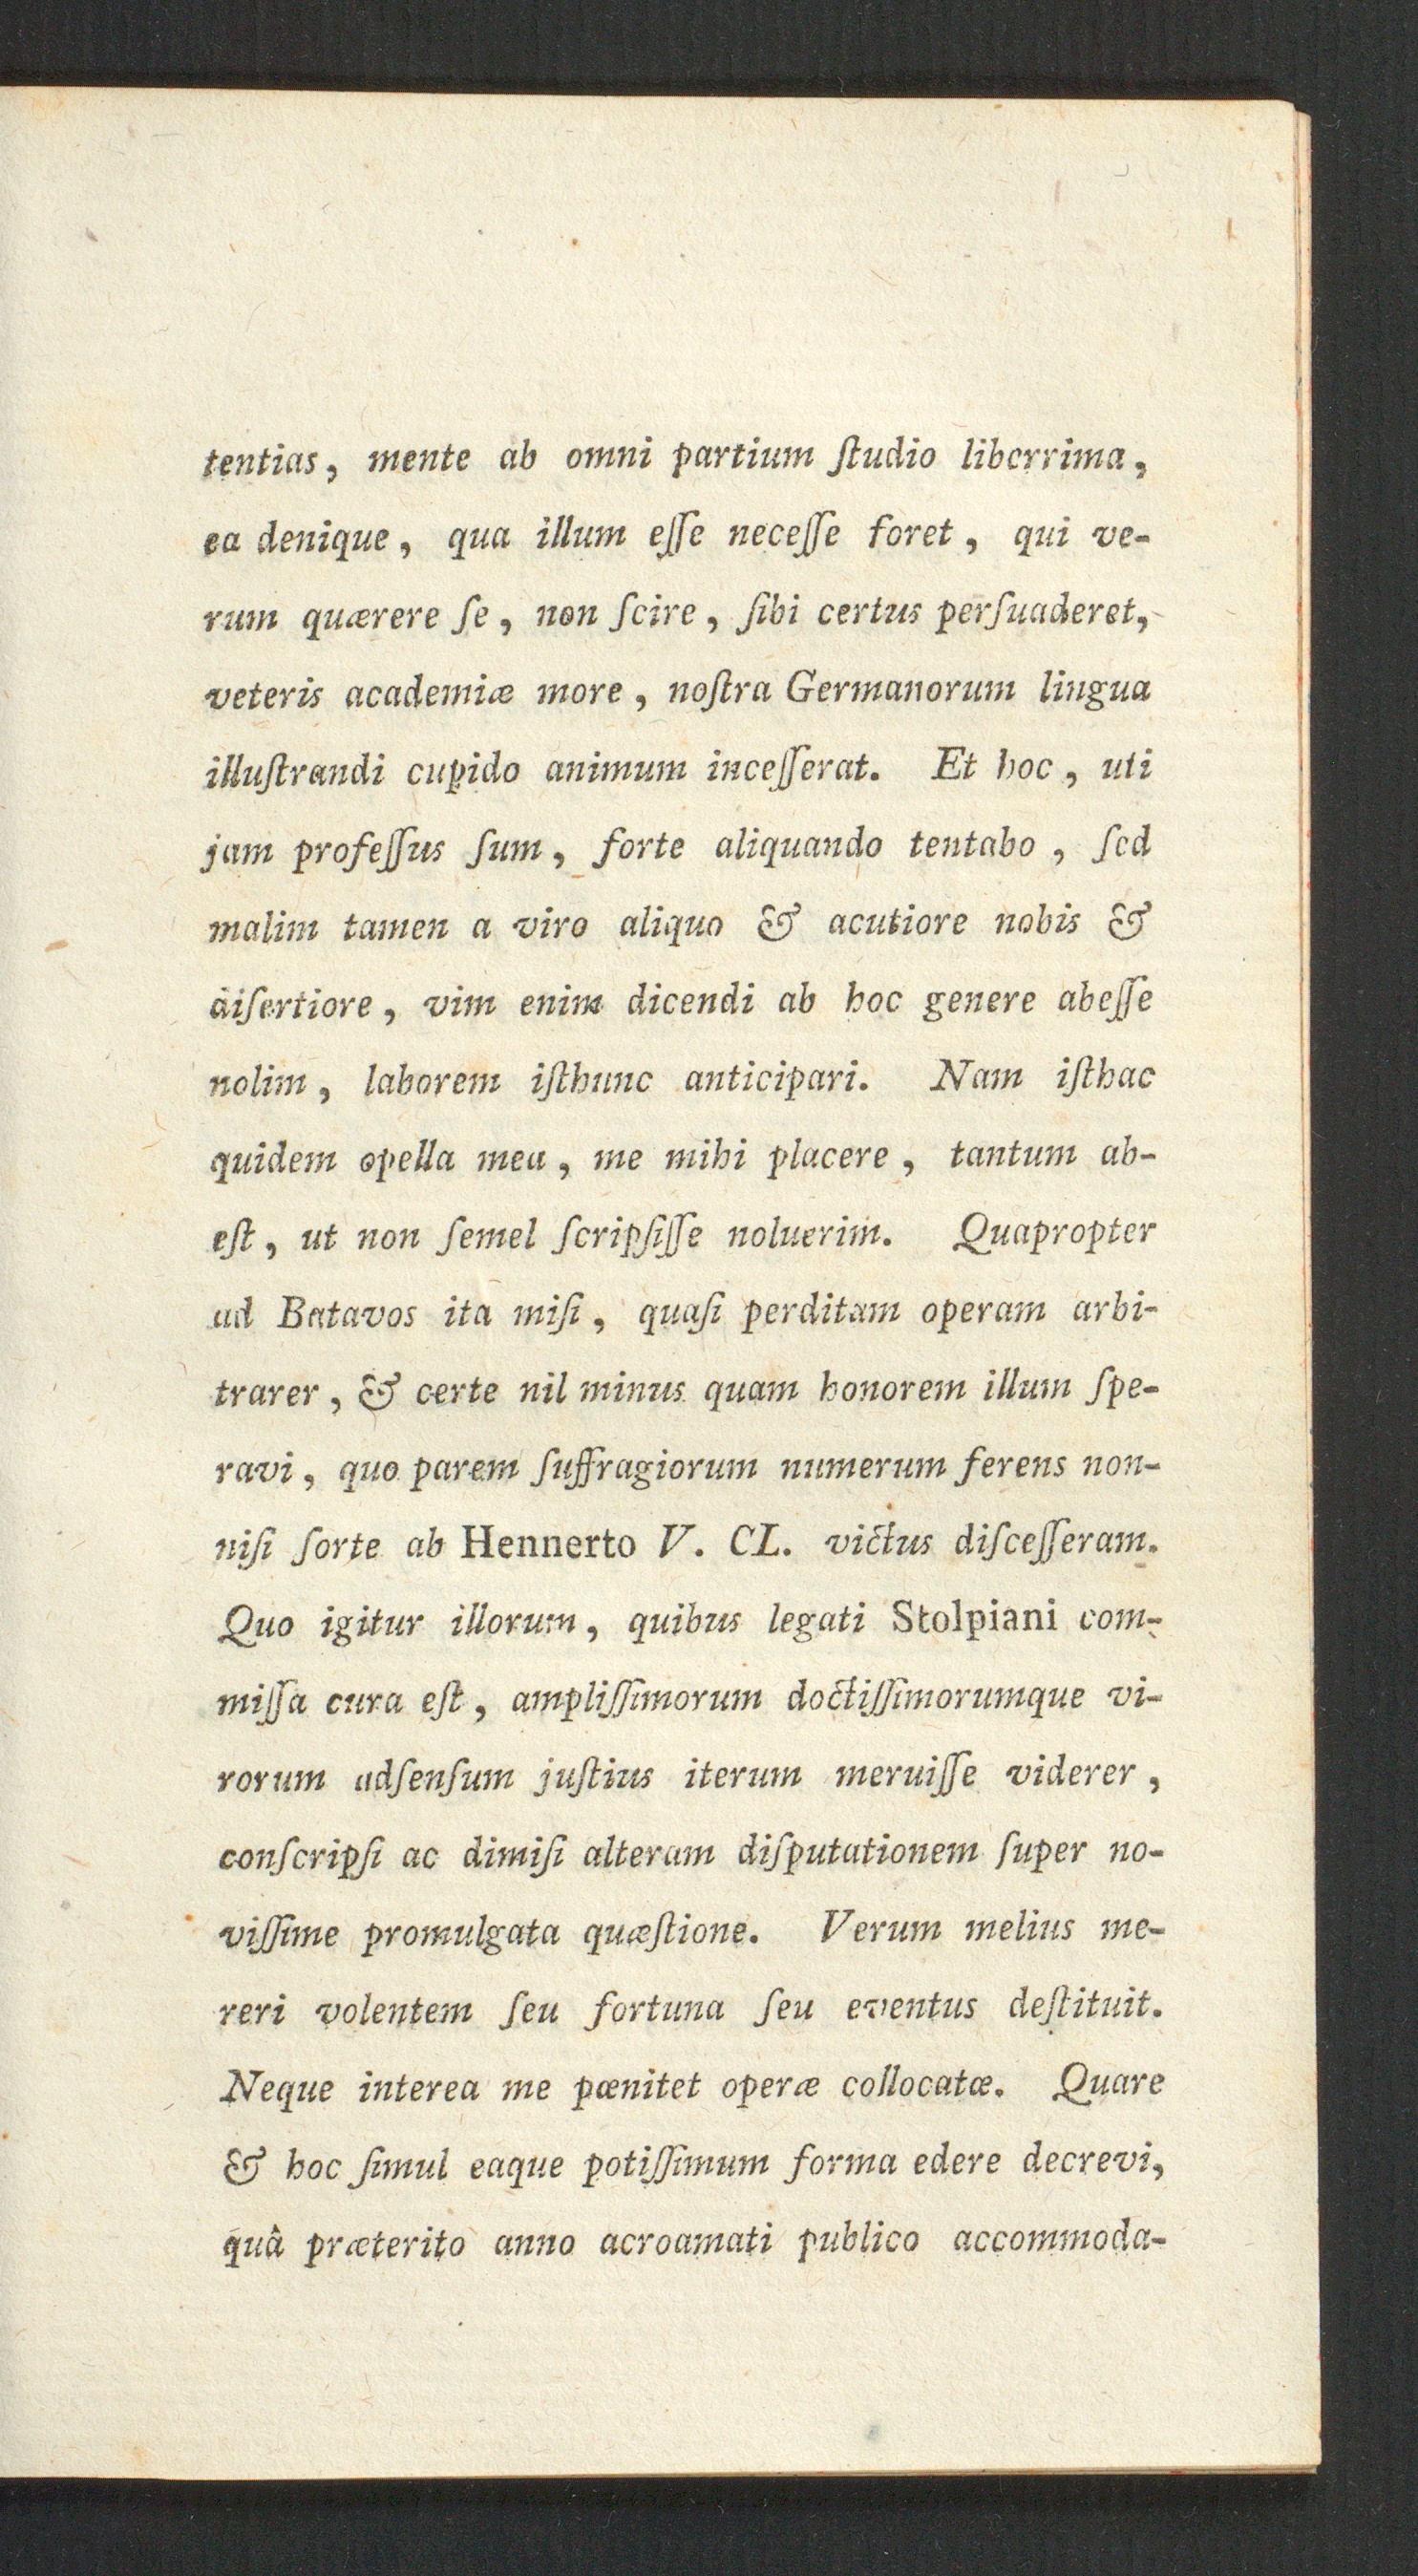 tentias, mente ab omni partium ſtudio liberrima,
ea denique, qua illum eſſe neceſſe foret, qui ve-
rum quærere ſe, non ſcire, ſibi certus perſuaderet,
veteris academiæ more, noſtra Germanorum lingua
illuſtrandi cupido animum inceſſerat. Et hoc, uti
jam profeſſus ſum, forte aliquando tentabo, ſed
malim tamen a viro aliquo & acutiore nobis &
diſertiore, vim enim dicendi ab hoc genere abeſſe
nolim, laborem iſthunc anticipari. Nam iſthac
quidem opella mea, me mihi placere, tantum ab-
eſt, ut non ſemel ſcripſiſſe noluerim. Quapropter
ad Batavos ita miſi, quaſi perditam operam arbi-
trarer, & certe nil minus quam honorem illum ſpe-
ravi, quo parem ſuffragiorum numerum ferens non-
niſi ſorte ab Hennerto V. CL. victus diſceſſeram.
Quo igitur illorum, quibus legati Stolpiani com-
miſſa cura eſt, ampliſſimorum doctiſſimorumque vi-
rorum adſenſum juſtius iterum meruiſſe viderer,
conſcripſi ac dimiſi alteram diſputationem ſuper no-
viſſime promulgata quæſtione. Verum melius me-
reri volentem ſeu fortuna ſeu eventus deſtituit.
Neque interea me pœnitet operæ collocatæ. Quare
& hoc ſimul eaque potiſſimum forma edere decrevi,
quâ præterito anno acroamati publico accommoda-